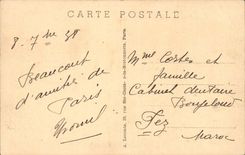 CARTE POSTALE
8. 7bre 38
Beaucoup
d'amitié de
Paris
Mme Cortes et
famille
Cabinet dentaire
Boujeloud
Fez
Maroc